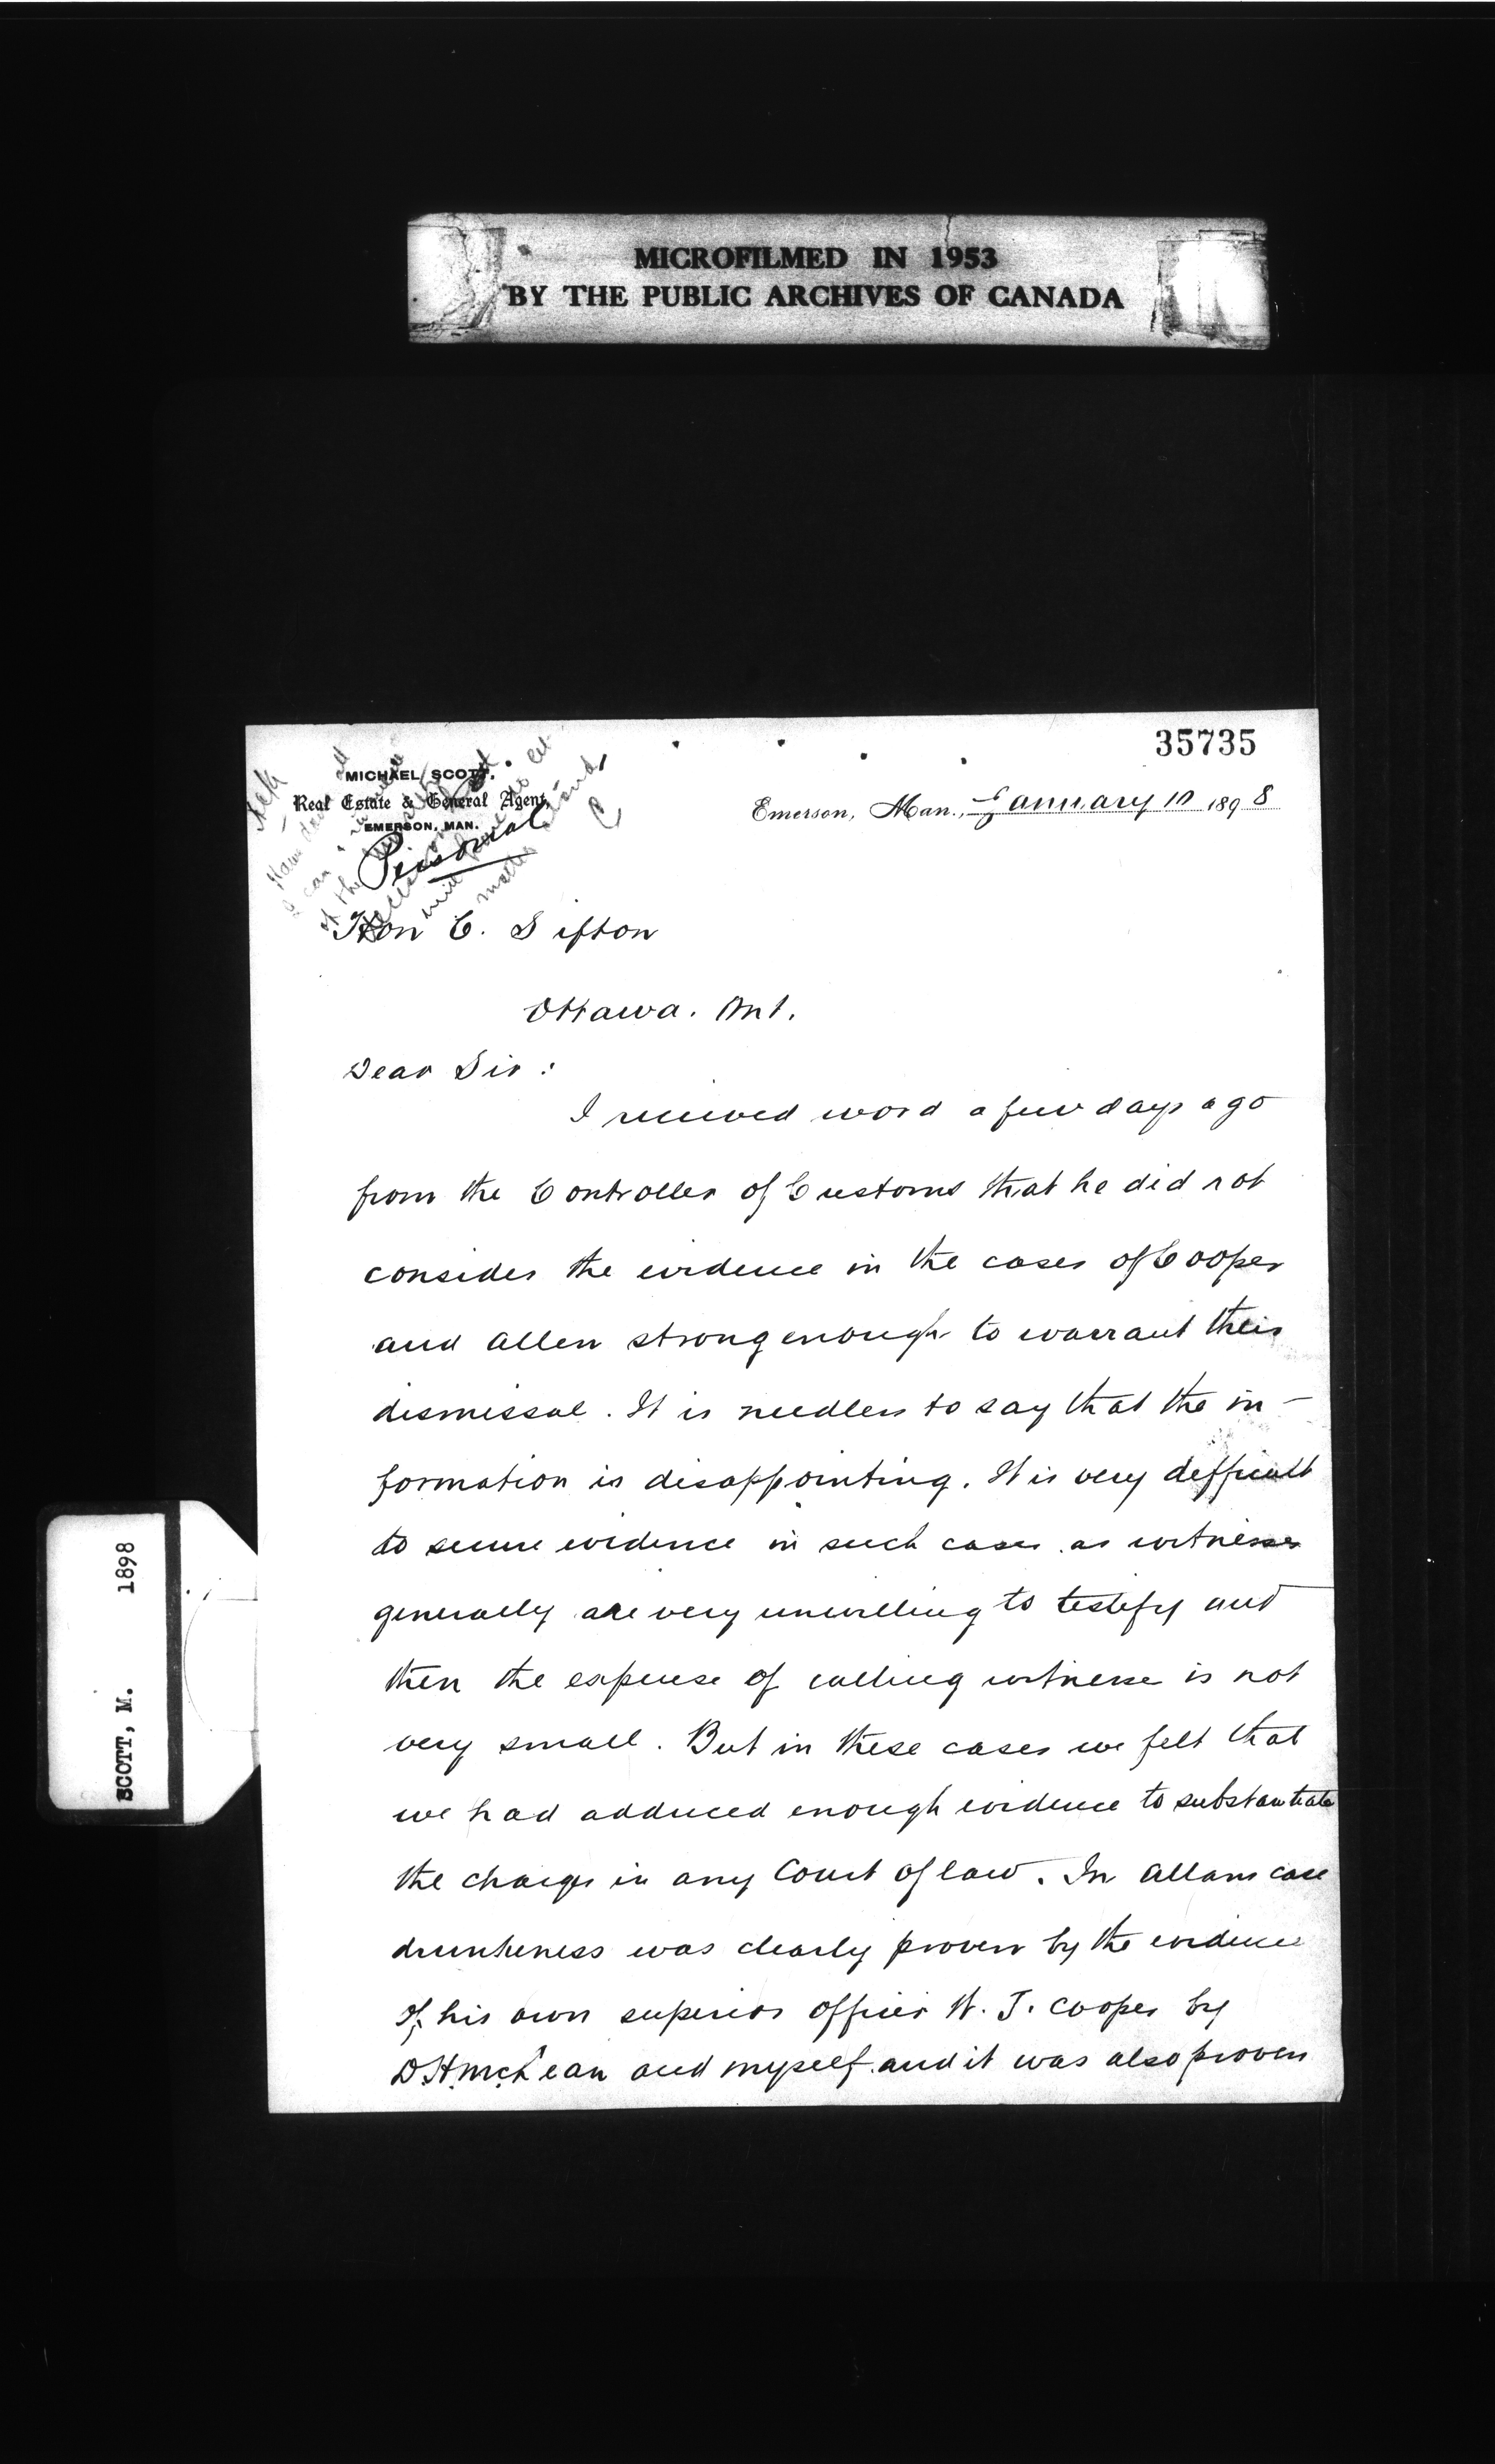 MICROFILMED IN 1953
BY THE PUBLIC ARCHIVES OF CANADA
35735
MICHAEL SCOTT,
Real Estate & General Agent,
EMERSON, MAN.
Emerson, Man., January 10 1898
Personal
Hon C. Sifton
Ottawa. Ont.
Dear Sir :
I received word a few days ago
from the Controller of Customs that he did not
consider the evidence in the cases of Cooper
and Allen strong enough to warrant their
dismissal. It is needless to say that the in-
formation is disappointing. It is very difficult
to secure evidence in such cases as witnesses
generally are very unwilling to testify and
then the expense of calling witnesse is not
very small. But in these cases we felt that
we had adduced enough evidence to substantiate
the charges in any Court of law. In Allans case
drunkeness was clearly proven by the evidence
of his own superior officer W. J. Cooper by
D H. McLean and myself and it was also proven
SCOTT, M. 1898